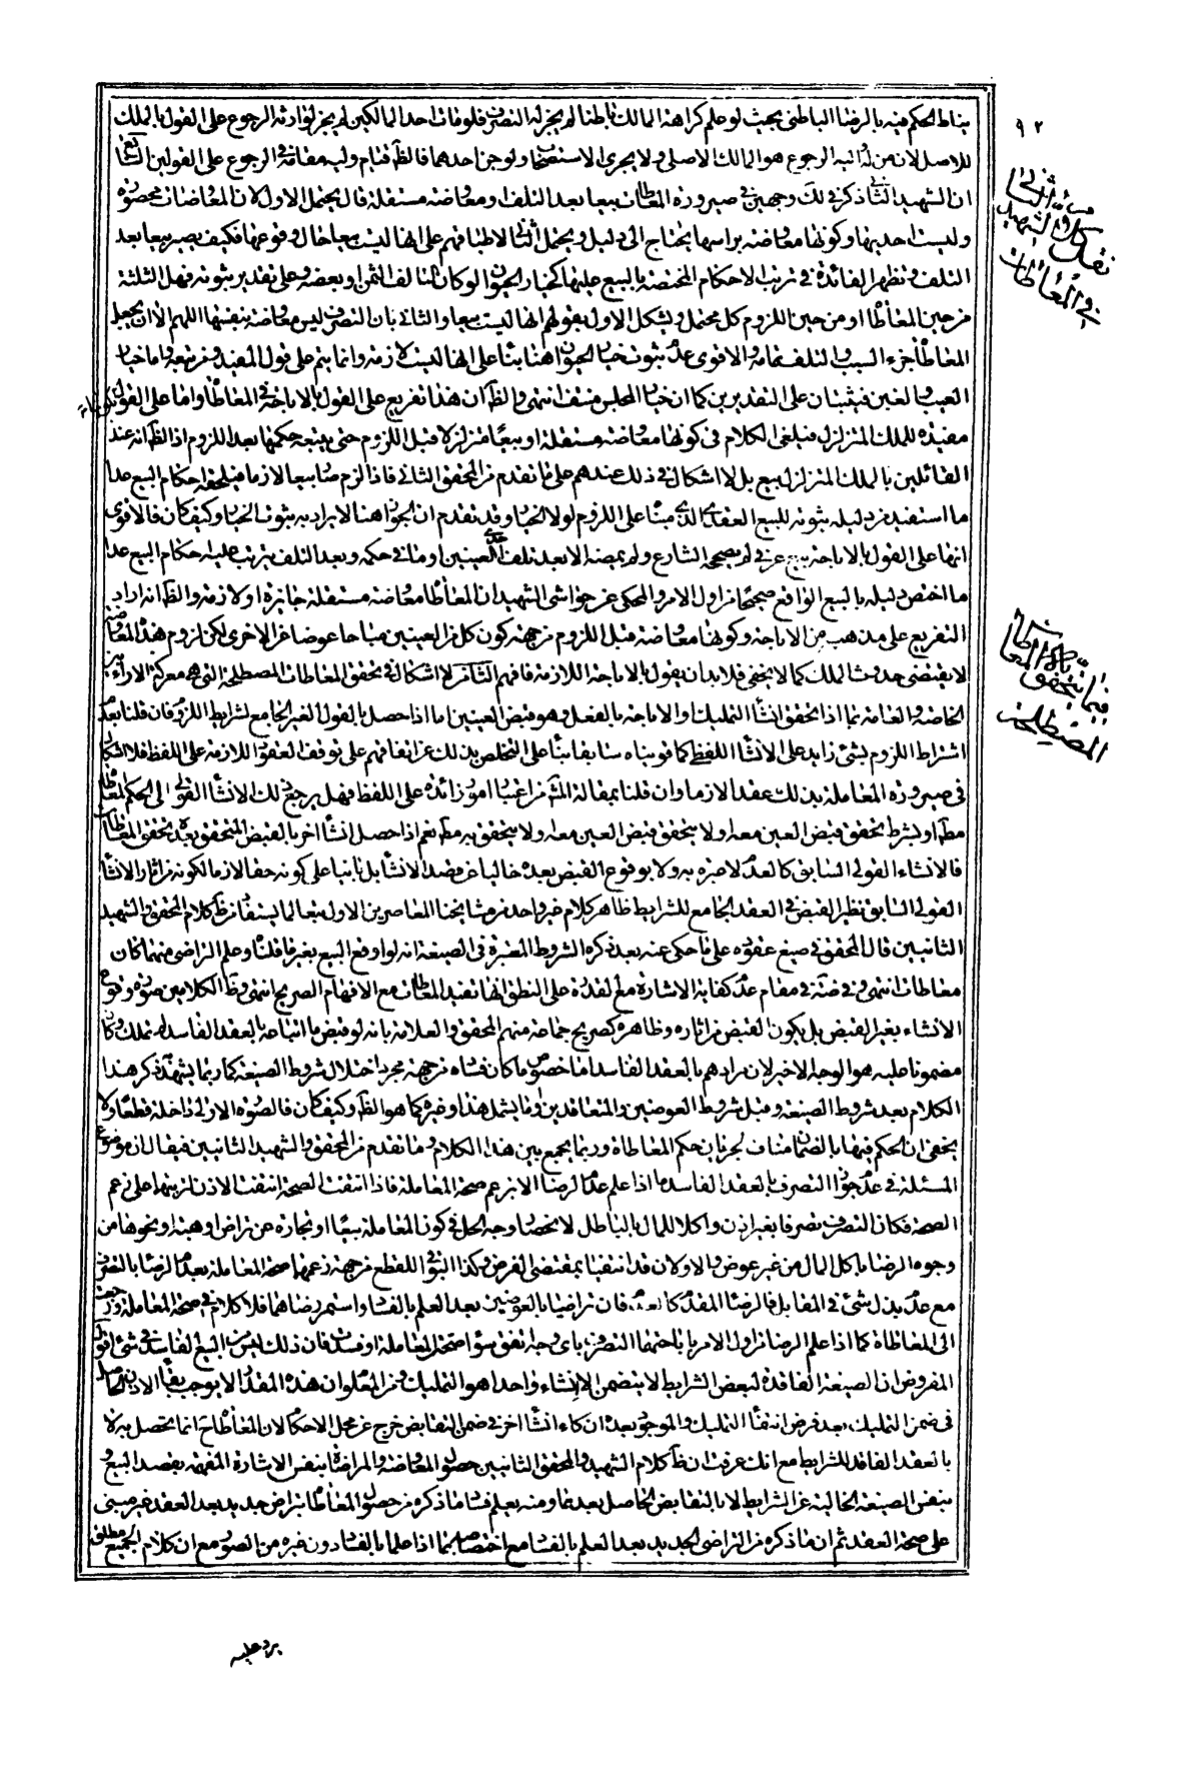 ٩٢
يناط الحكم فيه بالرضا الباطنى بحيث لو علم كراهة المالك باطنا لم يجز له التصرف فلو مات احد المالكين لم يجز لوارثه الرجوع على القول بالملك
للاصل لان من له واليه الرجوع هو المالك الاصلى ولا يجرى الاستصحاب ولو جن احدهما فالظ قيام وليه مقامه فى الرجوع على القولين السابع
ان الشهيد الثانى ذكر فى لك وجهين فى صيرورة المعاطات بيعا بعد التلف او معاوضة مستقلة قال يحتمل الاول لان المعاوضات محصورة
وليست احديها وكونها معاوضة براسها يحتاج الى دليل ويحتمل الثانى لاطباقهم على انها ليست بيعا حال وقوعها فكيف يصير بيعا بعد
التلف وتظهر الفائدة فى ترتب الاحكام المختصة بالبيع عليها كخيار الحيوان لو كان التالف الثمن او بعضه وعلى تقدير ثبوته فهل الثلثة
من حين المعاطاة او من حين اللزوم كل محتمل ويشكل الاول بقولهم انها ليست بيعا والثانى بان التصرف ليس معاوضة بنفسها اللهم الا ان يجعل
المعاطاة جزء السبب والتلف تمامه والاقوى عدم ثبوت خيار الحيوان هنا بناء على انها ليست لازمة وانما يتم على قول المفيد ومن تبعه واما خيار
العيب والغبن فيثبتان على التقديرين كما ان خيار المجلس منتف انتهى والظ ان هذا تفريع على القول بالاباحة فى المعاطاة واما على القول بكونها
مفيدة للملك المتزلزل فيلغى الكلام فى كونها معاوضة مستقلة او بيعا متزلزلا قبل اللزوم حتى يتبعه حكمها بعد اللزوم اذ الظ انه عند
القائلين بالملك المتزلزل بيع بلا اشكال فى ذلك عندهم على ما تقدم من المحقق الثانى فاذا لزم صار بيعا لازما فيلحقه احكام البيع عدا
ما استفيد من دليله ثبوته للبيع العقدى الذى مبناه على اللزوم لولا الخيار وقد تقدم ان الجواز هنا لا يراد به ثبوت الخيار وكيف كان فالاقوى
انها على القول بالاباحة بيع عرفى لم يصححه الشارع ولم يمضه الا بعد تلف احدى العينين او ما فى حكمه وبعد التلف يترتب عليه احكام البيع عدا
ما اختص دليله بالبيع الواقع صحيحا من اول الامر والمحكى عن حواشى الشهيد ان المعاطاة معاوضة مستقلة جائزة او لازمة والظ انه اراد
التفريع على مذهبه من الاباحة وكونها معاوضة قبل اللزوم من جهة كون كل من العينين مباحا عوضا عن الاخرى لكن لزوم هذه المعاوضة
لا يقتضى حدوث الملك كما لا يخفى فلا بد ان يقول بالاباحة اللازمة فافهم الثامن لا اشكال فى تحقق المعاطات المصطلحة التى هى معركة الاراء بين
الخاصة والعامة بما اذا تحقق انشاء التمليك والاباحة بالفعل وهو قبض العينين اما اذا حصل بالقول الغير الجامع لشرائط اللزوم فان قلنا بعدم
اشتراط اللزوم بشئ زايد على الانشاء اللفظى كما قويناه سابقا بناء على التخلص بذلك عن اتفاقهم على توقف العقود اللازمة على اللفظ فلا اشكال
فى صيرورة المعاملة بذلك عقدا لازما وان قلنا بمقالة المشهور من اعتبار امور زائدة على اللفظ فهل يرجع ذلك الانشاء القولى الى حكم المعاطاة
مطلقا او بشرط تحقق قبض العين معه او لا يتحقق قبض العين معه ولا يتحقق به مط نعم اذا حصل انشاء اخر بالقبض المتحقق بعده تحقق المعاطاة
فالانشاء القولى السابق كالعدم لا عبرة به ولا بوقوع القبض بعده خاليا عن قصد الانشاء بل بانيا على كونه حقا لازما لكونه من اثار الانشاء
القولى السابق نظير القبض فى العقد الجامع للشرايط ظاهر كلام غير واحد من مشايخنا المعاصرين الاول تبعا لما يستفاد من ظ كلام المحقق والشهيد
الثانيين قال المحقق فى صيغ عقوده على ما حكى عنه بعد ذكره الشروط المعتبرة فى الصيغة انه لو اوقع البيع بغير ما قلناه وعلم التراضى منهما كان
معاطات انتهى وفى ضه فى مقام عدم كفاية الاشارة مع القدرة على النطق انها تفيد المعاطات مع الافهام الصريح انتهى وظ الكلامين صورة وقوع
الانشاء بغير القبض بل يكون القبض من اثاره وظاهره كصريح جماعة منهم المحقق والعلامة بانه لو قبض ما ابتاعه بالعقد الفاسد لم يملك وكان
مضمونا عليه هو الوجه الاخير لان مرادهم بالعقد الفاسد اما خصوص ما كان فساده من جهة مجرد اختلال شروط الصيغة كما ربما يشهد به ذكر هذا
الكلام بعد شروط الصيغة وقبل شروط العوضين والمتعاقدين واما يشمل هذا وغيره كما هو الظ وكيف كان فالصورة الاولى داخلة قطعا ولا
يخفى ان الحكم فيها بالضمان مناف لجريان حكم المعاطاة وربما يجمع بين هذا الكلام وما تقدم من المحقق والشهيد الثانيين فيقال ان موضوع
المسئلة فى عدم جواز التصرف بالعقد الفاسد ما اذا علم عدم الرضا الا بزعم صحة المعاملة فاذا انتفت الصحة انتفت الاذن لترتبها على زعم
الصحة فكان التصرف تصرفا بغير اذن واكلا للمال بالباطل لانحصار وجه الحل فى كون المعاملة بيعا او تجارة عن تراض او هبة او نحوها من
وجوه الرضا باكل المال من غير عوض والاولان قد انتفيا بمقتضى الفرض وكذا البواقى للقطع من جهة زعمها صحة المعاملة بعدم الرضا بالتصرف
مع عدم بذل شئ فى المقابل فالرضا المقدم كالعدم فان تراضيا بالعوضين بعد العلم بالفساد واستمر رضاهما فلا كلام فى صحة المعاملة ورجعت
الى المعاطاة كما اذا علم الرضا من اول الامر باباحتهما التصرف باى وجه اتفق سواء صحت المعاملة او فسدت فان ذلك ليس من البيع الفاسد فى شئ اقول
المفروض ان الصيغة الفاقدة لبعض الشرايط لا يتضمن الا انشاء واحدا هو التمليك ومن المعلوم ان هذه المقدار لا يوجب بقاء الاذن الحاصل
فى ضمن التمليك بعد فرض انتفاء التمليك والموجود بعده ان كان انشاء اخر فى ضمن التقابض خرج عن محل الاحكام لان المعاطاة ح انما تحصل به لا
بالعقد الفاقد للشرايط مع انك عرفت ان ظ كلام الشهيد والمحقق الثانيين حصول المعاوضة والمراضاة بنفس الاشارة المفهمة بقصد البيع و
بنفس الصيغة الخالية عن الشرايط لا بالتقابض الحاصل بعدهما ومنه يعلم فساد ما ذكره من حصول المعاطاة بتراض جديد بعد العقد غير مبنى
على صحة العقد ثم ان ما ذكره من التراضى الجديد بعد العلم بالفساد مع اختصاصه بما اذا علما بالفساد دون غيره من الصور مع ان كلام الجميع مطلق
يرد عليه
نقل كلام الشهيد
فى المعاطات
فيما يتحقق به المعاطات
المصطلحة